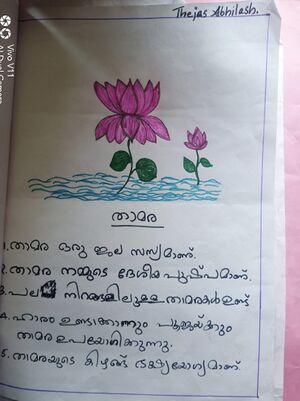 Thejas Abhilash.
vivo V11
AI Dual Camera
താമര
1. താമര ഒരു ജല സസ്യമാണ്.
2. താമര നമ്മുടെ ദേശീയ പുഷ്പമാണ്.
3. പല നിറങ്ങളിലുള്ള താമരകൾ ഉണ്ട്
4. ഹാരം ഉണ്ടാക്കാനും പൂജയ്ക്കും
താമര ഉപയോഗിക്കുന്നു.
5. താമരയുടെ കിഴങ്ങ് ഭക്ഷ്യയോഗ്യമാണ്.